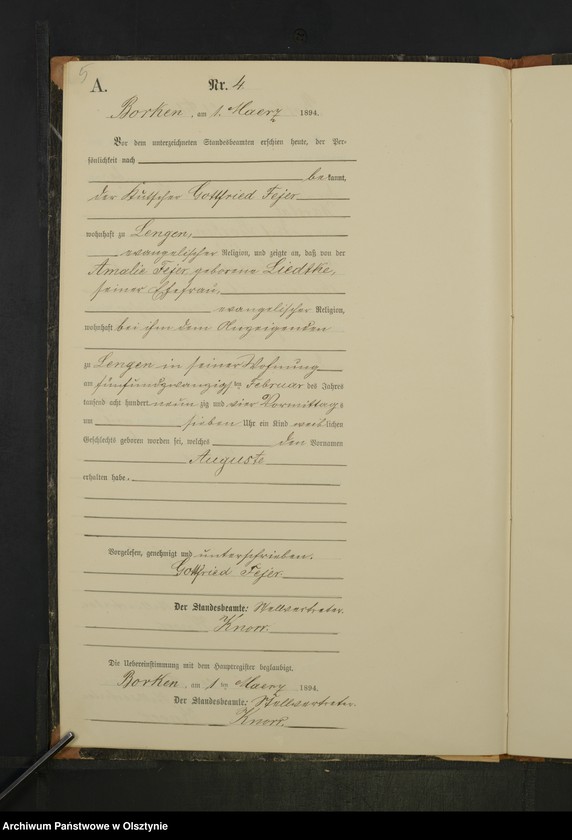 5
A.
Nr. 4
Borken, am 1. Maerz 1894.
Vor dem unterzeichneten Standesbeamten erschien heute, der Per-
sönlichkeit nach
bekannt,
der Kutscher Gottfried Fejer
wohnhaft zu Lengen,
evangelischer Religion, und zeigte an, daß von der
Amalie Fejer geborene Liedtke,
seiner Ehefrau,
evangelischer Religion,
wohnhaft bei ihm dem Anzeigenden
zu Lengen in seiner Wohnung
am fünfundzwanzigsten Februar des Jahres
tausend acht hundert neunzig und vier Vormittags
um sieben Uhr ein Kind weiblichen
Geschlechts geboren worden sei, welches den Vornamen
Auguste
erhalten habe.
Vorgelesen, genehmigt und unterschrieben.
Gottfried Fejer
Der Standesbeamte: Stellvertreter.
Knorr.
Die Uebereinstimmung mit dem Hauptregister beglaubigt.
Borken, am 1 ten Maerz 1894.
Der Standesbeamte: Stellvertreter.
Knorr.
Archiwum Państwowe w Olsztynie